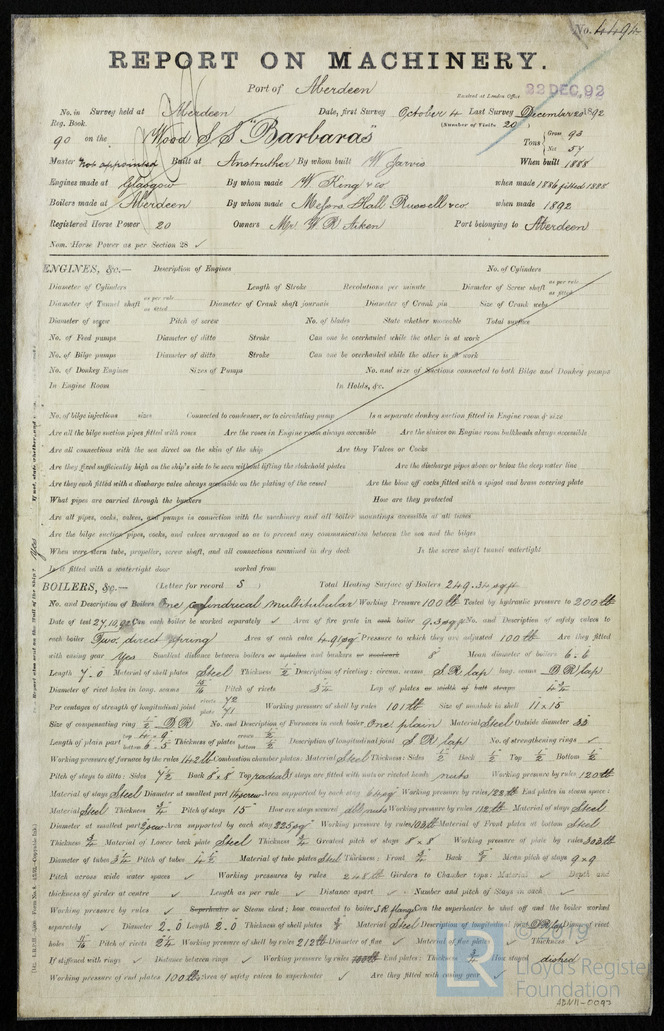 No. 4494
REPORT ON MACHINERY.
Port of Aberdeen
Received at London Office 22 DEC.92
No. in Survey held at Aberdeen Date, first Survey October 4 Last Survey December 20 1892
Reg. Book. (Number of Visits 20)
90 on the Wood S S "Barbaras" Tons Gross 93 Net 57
Master not appointed Built at Anstruther By whom built W Jarvis When built 1888
Engines made at Glasgow By whom made W. King & Co when made 1886 fitted 1888
Boilers made at Aberdeen By whom made Messrs Hall Russell & Co when made 1892
Registered Horse Power 20 Owners W R Aiken Port belonging to Aberdeen
Nom. Horse Power as per Section 28 ✓
ENGINES, &c.— Description of Engines No. of Cylinders
Diameter of Cylinders Length of Stroke Revolutions per minute Diameter of Screw shaft as per rule as fitted
Diameter of Tunnel shaft as per rule as fitted Diameter of Crank shaft journals Diameter of Crank pin Size of Crank webs
Diameter of screw Pitch of screw No. of blades State whether moveable Total surface
No. of Feed pumps Diameter of ditto Stroke Can one be overhauled while the other is at work
No. of Bilge pumps Diameter of ditto Stroke Can one be overhauled while the other is at work
No. of Donkey Engines Sizes of Pumps No. and size of Suctions connected to both Bilge and Donkey pumps
In Engine Room In Holds, &c.
No. of bilge injections sizes Connected to condenser, or to circulating pump Is a separate donkey suction fitted in Engine room & size
Are all the bilge suction pipes fitted with roses Are the roses in Engine room always accessible Are the sluices on Engine room bulkheads always accessible
Are all connections with the sea direct on the skin of the ship Are they Valves or Cocks
Are they fixed sufficiently high on the ship's side to be seen without lifting the stokehold plates Are the discharge pipes above or below the deep water line
Are they each fitted with a discharge valve always accessible on the plating of the vessel Are the blow off cocks fitted with a spigot and brass covering plate
What pipes are carried through the bunkers How are they protected
Are all pipes, cocks, valves, and pumps in connection with the machinery and all boiler mountings accessible at all times
Are the bilge suction pipes, cocks, and valves arranged so as to prevent any communication between the sea and the bilges
When were stern tube, propeller, screw shaft, and all connections examined in dry dock Is the screw shaft tunnel watertight
Is it fitted with a watertight door worked from
BOILERS, &c.— (Letter for record S) Total Heating Surface of Boilers 249.34 sq ft
No. and Description of Boilers One cylindrical multitubular Working Pressure 100 lb Tested by hydraulic pressure to 200 lb
Date of test 27.10.92 Can each boiler be worked separately ✓ Area of fire grate in each boiler 9.3 sq ft No. and Description of safety valves to
each boiler Two. direct spring Area of each valve 4.91 sq Pressure to which they are adjusted 100 lb Are they fitted
with easing gear yes Smallest distance between boilers or uptakes and bunkers or woodwork 8" Mean diameter of boilers 6.6
Length 7.0 Material of shell plates Steel Thickness 1/2 Description of riveting: circum. seams S.R lap long. seams D R lap
Diameter of rivet holes in long. seams Pitch of rivets Lap of plates or width of butt straps
Per centages of strength of longitudinal joint rivets 72 plate 71 Working pressure of shell by rules 101 lb Size of manhole in shell 11 x 15
Size of compensating ring D.R No. and Description of Furnaces in each boiler One plain Material Steel Outside diameter 30
Length of plain part top 4.9 bottom 6.5 Thickness of plates crown 1/2 bottom 1/2 Description of longitudinal joint S.R lap No. of strengthening rings ✓
Working pressure of furnace by the rules 142 lb Combustion chamber plates: Material Steel Thickness: Sides 1/2 Back 1/2 Top 1/2 Bottom 1/2
Pitch of stays to ditto: Sides 7 1/2 Back 8 x 8 Top radial If stays are fitted with nuts or riveted heads nuts Working pressure by rules 120 lb
Material of stays Steel Diameter at smallest part Area supported by each stay Working pressure by rules 122 lb End plates in steam space:
Material Steel Thickness 3/4 Pitch of stays 15" How are stays secured dbl nuts Working pressure by rules 112 lb Material of stays Steel
Diameter at smallest part Area supported by each stay 225 sq" Working pressure by rules 103 lb Material of Front plates at bottom Steel
Thickness 3/4 Material of Lower back plate Steel Thickness 3/4 Greatest pitch of stays 8 x 8 Working pressure of plate by rules 303 lb
Diameter of tubes 3 1/4 Pitch of tubes 4 1/2 Material of tube plates Steel Thickness: Front 3/4 Back 5/8 Mean pitch of stays 9 x 9
Pitch across wide water spaces ✓ Working pressures by rules 248 lb Girders to Chamber tops: Material ✓ Depth and
thickness of girder at centre ✓ Length as per rule ✓ Distance apart ✓ Number and pitch of Stays in each ✓
Working pressure by rules ✓ Superheater or Steam chest; how connected to boiler S R flange Can the superheater be shut off and the boiler worked
separately ✓ Diameter 2.0 Length 2.0 Thickness of shell plates 3/8 Material Steel Description of longitudinal joint D R lap Diam. of rivet
holes Pitch of rivets 2 1/4 Working pressure of shell by rules 212 lb Diameter of flue ✓ Material of flue plates ✓ Thickness ✓
If stiffened with rings ✓ Distance between rings ✓ Working pressure by rules End plates: Thickness 3/4 How stayed dished
Working pressure of end plates 100 lb Area of safety valves to superheater ✓ Are they fitted with easing gear ✓
LR
Lloyd's Register
Foundation